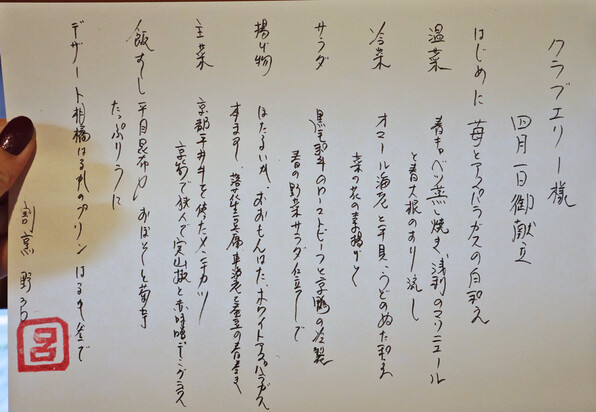 クラブエリー様
四月一日御献立
はじめに 苺とアスパラガスの白和え
温菜 春キャベツ蒸し焼き、浅利のマリニエール
と春大根のすり流し
冷菜 オマール海老と平貝、うどのぬた和え
菜の花の素揚げと
サラダ 黒毛和牛のローストビーフと京鴨の冷製
春の野菜サラダ仕立てで
揚げ物 ほたるいか、おおもんはた、ホワイトアスパラガス
主菜 京都平井牛を使ったメンチカツ
京筍で挟んで実山椒と赤味噌デミグラス
飯 すし 平目昆布〆 おぼろと
たっぷりうに
デザート 柑橘はるかのプリン はるか釜で
割烹 野ろ
呂